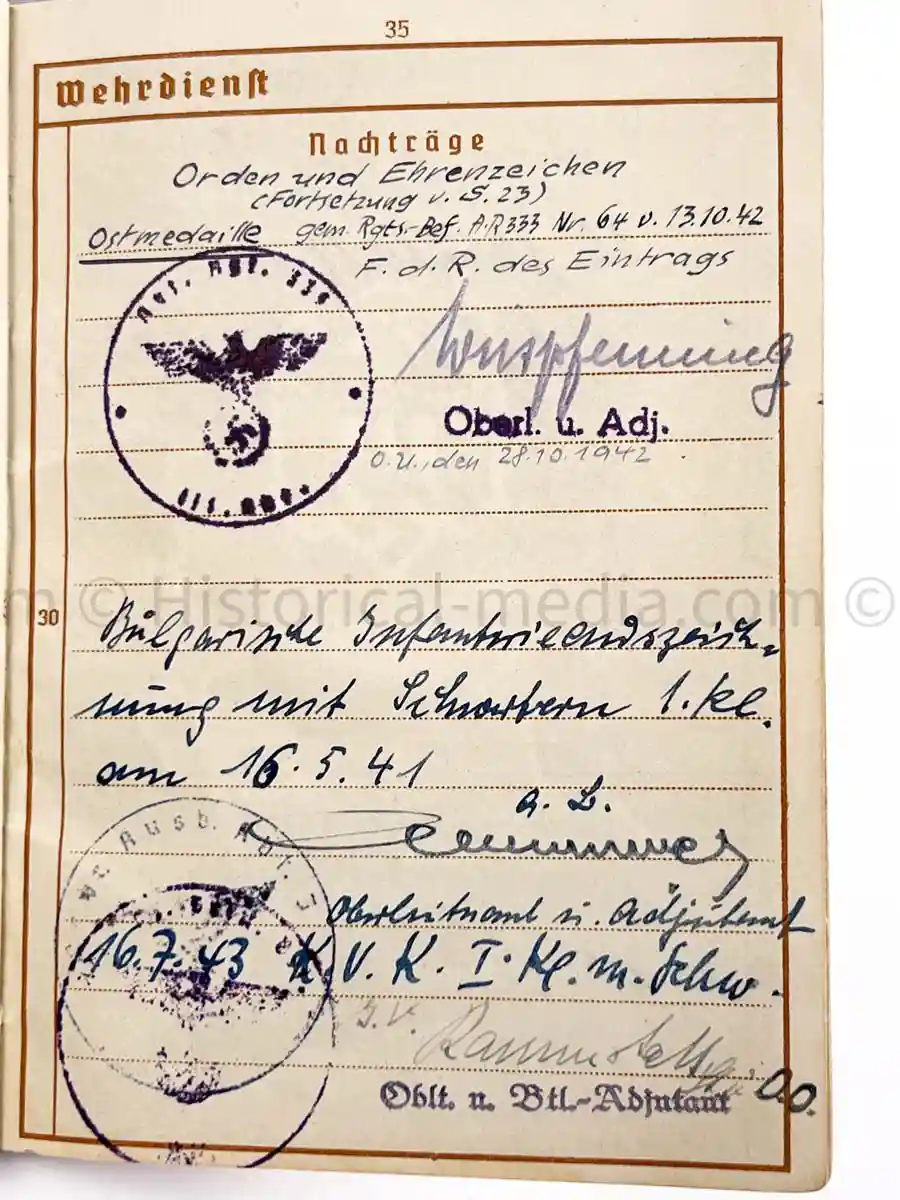 35
Wehrdienst
Nachträge
Orden und Ehrenzeichen
(Fortsetzung v. S. 23)
Ostmedaille gem. Rgts-Bef. A.R 333 Nr. 64 v. 13.10.42
F. d. R. des Eintrags
Oberl. u. Adj.
O.U., den 28.10.1942
III. Abt.
© Historical-media.com ©
30
Bulgarische Infanterieauszeich-
nung mit Schwertern 1. Kl.
am 16.5.41
a. B.
Ausb.
Oberleutnant u. Adjutant
16.7.43 K.V.K. I. Kl. m. Schw.
Oblt. u. Btl.-Adjutant